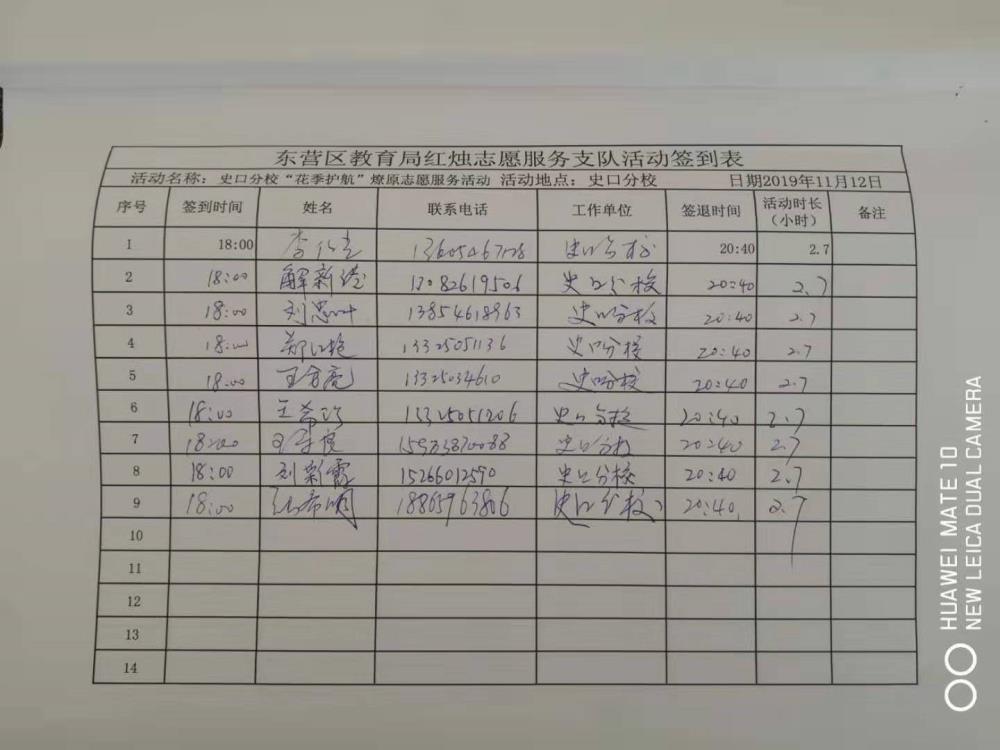 东营区教育局红烛志愿服务支队活动签到表
活动名称：史口分校“花季护航”燎原志愿服务活动 活动地点：史口分校 日期2019年11月12日
序号 签到时间 姓名 联系电话 工作单位 签退时间 活动时长（小时） 备注
1 18:00 史口分校 20:40 2.7
2 18:00 解新 13082619506 史口分校 20:40 2.7
3 18:00 刘忠叶 13854618963 史口分校 20:40 2.7
4 18:00 郑红艳 13325051136 史口分校 20:40 2.7
5 18:00 王 亮 13325034610 史口分校 20:40 2.7
6 18:00 王希 13325051206 史口分校 20:40 2.7
7 18:00 史口分校 20:40 2.7
8 18:00 刘新霞 15266012590 史口分校 20:40 2.7
9 18:00 希明 18865963806 史口分校 20:40 2.7
10
11
12
13
14
HUAWEI MATE 10
NEW LEICA DUAL CAMERA